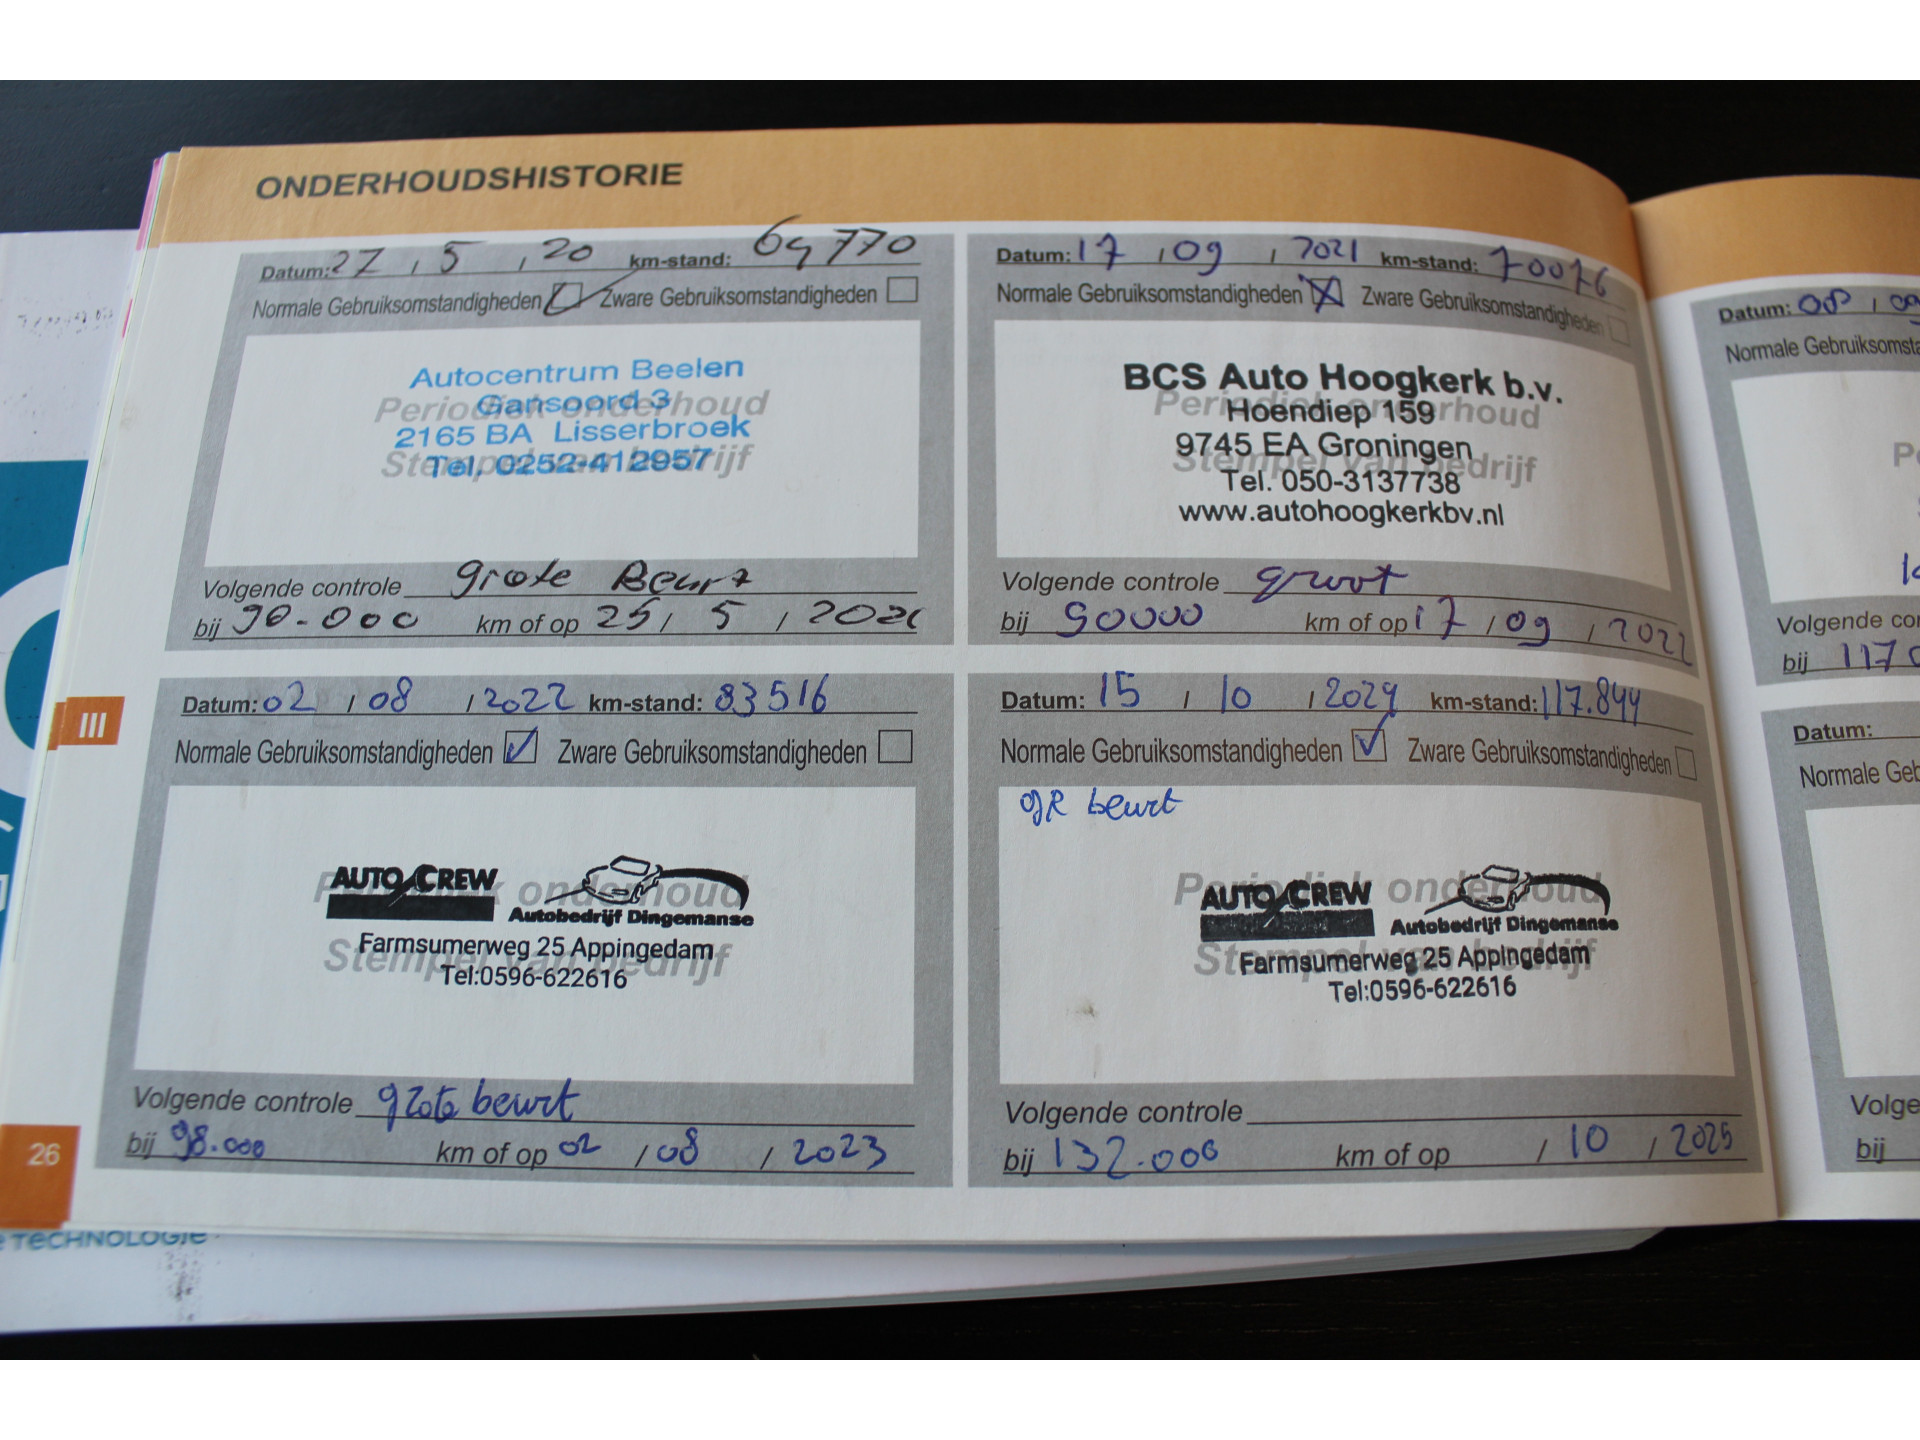 ONDERHOUDSHISTORIE
Datum: 27 / 5 / 20 km-stand: 69770
Normale Gebruiksomstandigheden Zware Gebruiksomstandigheden
Periodiek onderhoud
Stempel van bedrijf
Autocentrum Beelen
Gansoord 3
2165 BA Lisserbroek
Tel. 0252-412957
Volgende controle grote Beurt
bij 90.000 km of op 25 / 5 / 2021
Datum: 17 / 09 / 2021 km-stand: 70076
Normale Gebruiksomstandigheden Zware Gebruiksomstandigheden
Periodiek onderhoud
Stempel van bedrijf
BCS Auto Hoogkerk b.v.
Hoendiep 159
9745 EA Groningen
Tel. 050-3137738
www.autohoogkerkbv.nl
Volgende controle groot
bij 90000 km of op 17 / 09 / 2022
III
Datum: 02 / 08 / 2022 km-stand: 83516
Normale Gebruiksomstandigheden Zware Gebruiksomstandigheden
Periodiek onderhoud
Stempel van bedrijf
AUTO CREW Autobedrijf Dingemanse
Farmsumerweg 25 Appingedam
Tel:0596-622616
Volgende controle grote beurt
bij 98.000 km of op 02 / 08 / 2023
Datum: 15 / 10 / 2024 km-stand: 117.844
Normale Gebruiksomstandigheden Zware Gebruiksomstandigheden
gR beurt
Periodiek onderhoud
Stempel van bedrijf
AUTO CREW Autobedrijf Dingemanse
Farmsumerweg 25 Appingedam
Tel:0596-622616
Volgende controle
bij 132.000 km of op / 10 / 2025
26
Datum: 08 / 09
Normale Gebruiksomsta
Volgende co
bij 117
Datum:
Normale Geb
Volge
bij
e TECHNOLOGIE